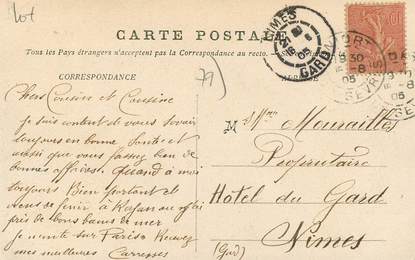 Lot
CARTE POSTALE
Tous les Pays étrangers n'acceptent pas la Correspondance au recto.
CORRESPONDANCE
79)
NIMES
GARD
05
Chers Cousin et Cousine
Je suis content de vous savoir
toujours en bonne Santé et
aussi que vous fassiez bien de
bonnes affaires. Quand à moi
toujours Bien portant et
viens de finir à
près de bons bains de mer
Je rentre sur Paris. Recevez
mes meilleures Caresses
M
Mourailles
Propriétaire
Hôtel du Gard
Nimes
(Gard)